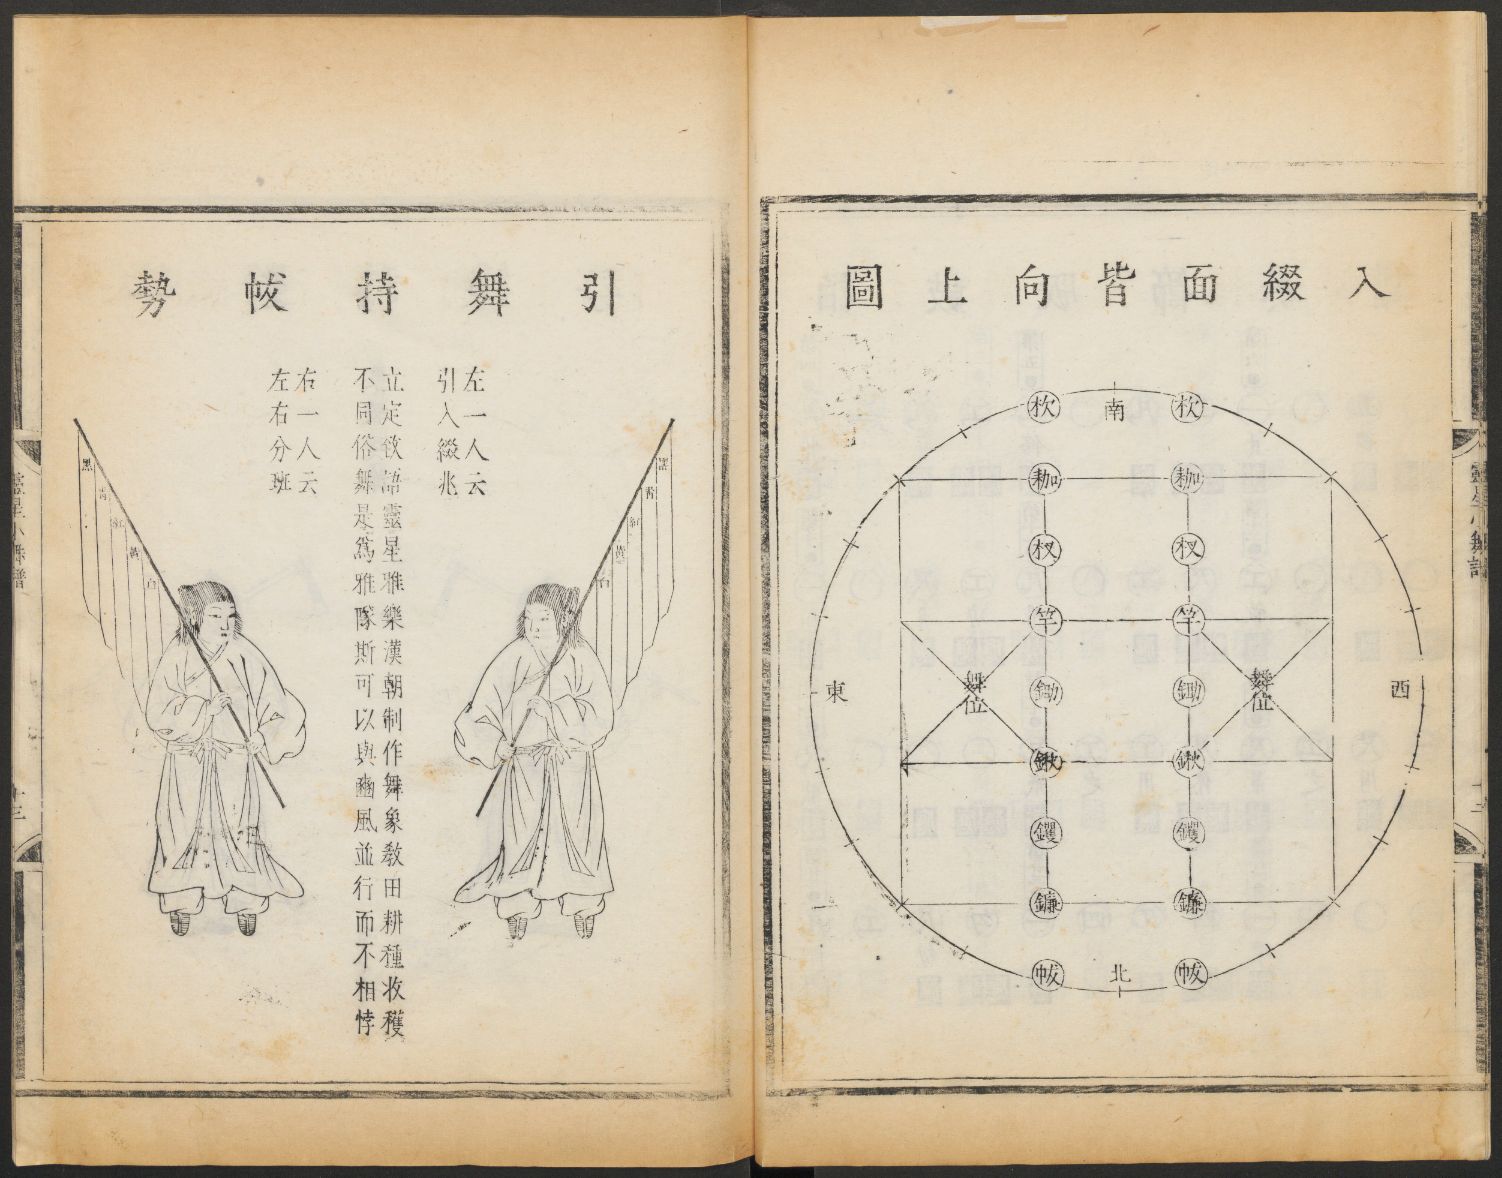 入綴面皆向上圖
南
杴 杴
耞 耞
杈 杈
竿 竿
東 舞位 鋤 鋤 舞位 西
鍬 鍬
钁 钁
鐮 鐮
帗 北 帗
引舞持帗勢
左一人云
引入綴兆
立定致語靈星雅樂漢朝制作舞象教田耕種收穫
不同俗舞是爲雅隊斯可以與豳風並行而不相悖
右一人云
左右分班
黑青紅黃白
黑青紅黃白
靈星小舞譜
十三
靈星小舞譜